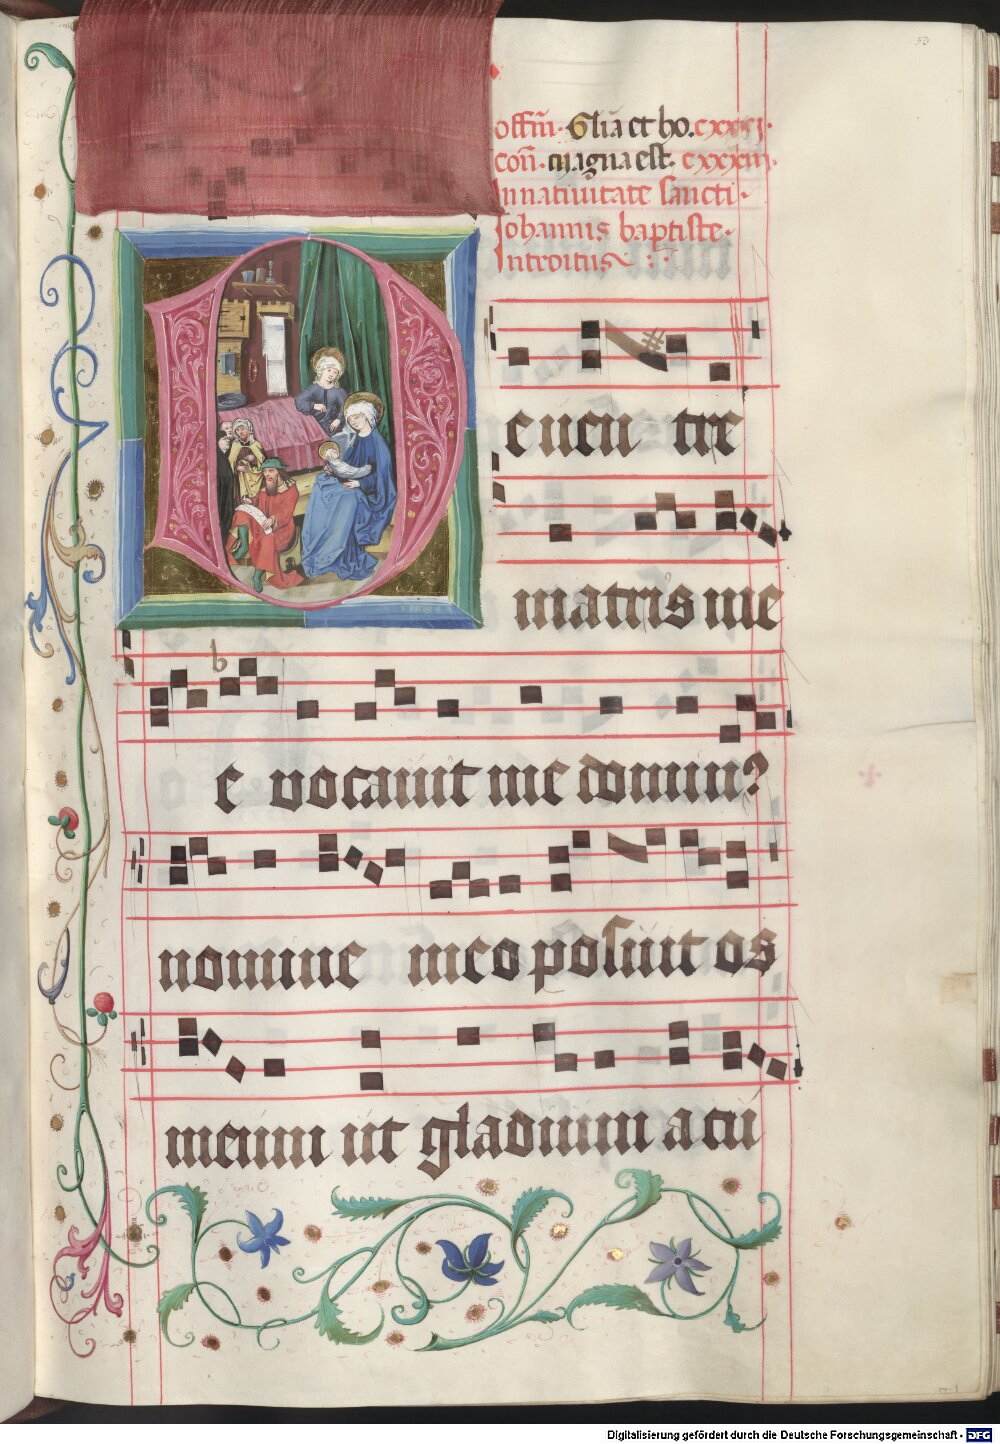 53
offm̄. Gl̄ia et ho. cxxxi.
coīō. magna est. cxxxiii.
In natiuitate sancti.
Johannis baptiste.
Introitus
De uen tre
matris me
b
e vocauit me domin?
nomine meo posuit os
meum ut gladium acu
Digitalisierung gefördert durch die Deutsche Forschungsgemeinschaft - DFG